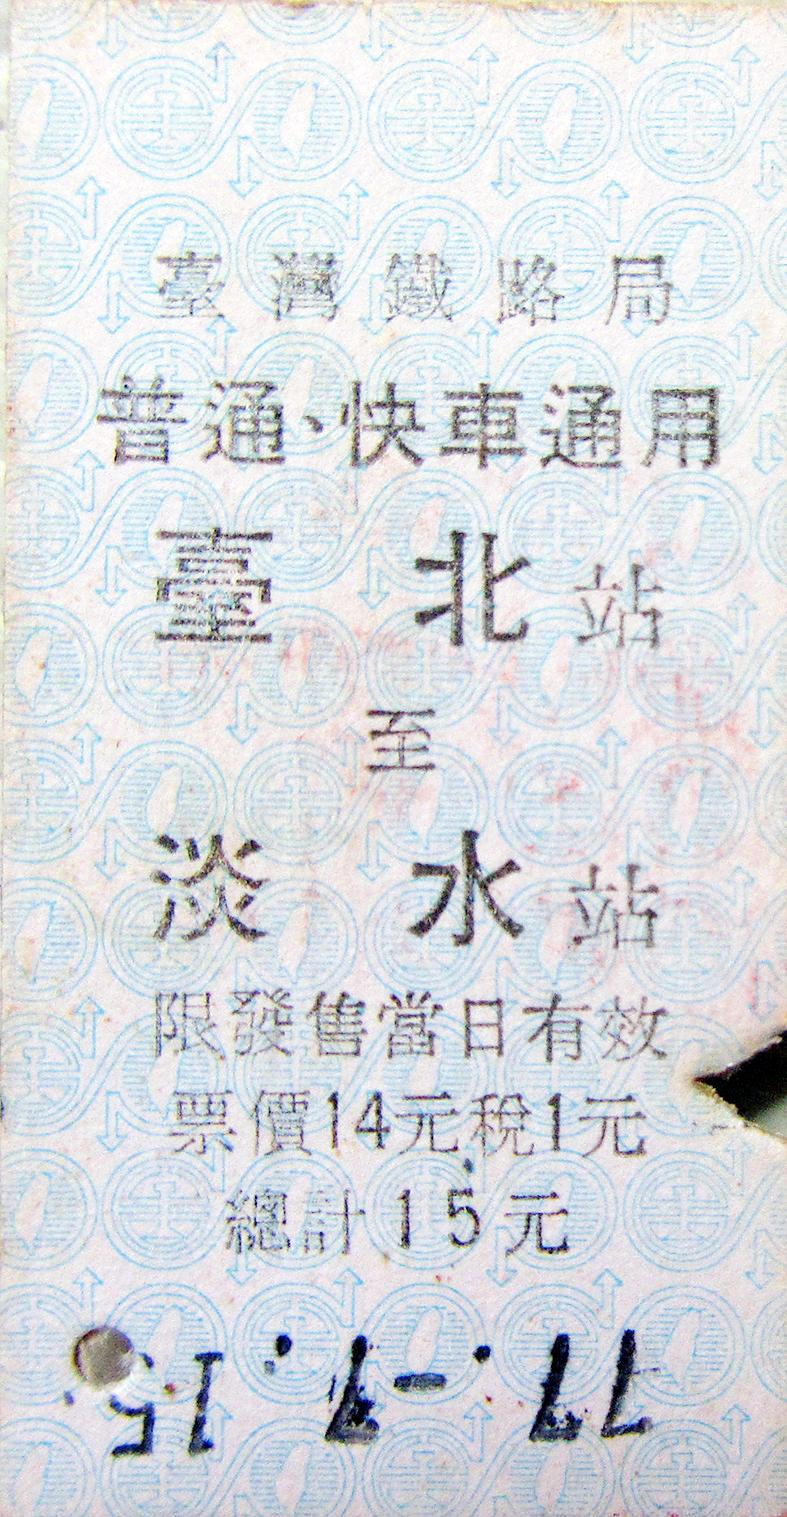 臺灣鐵路局
普通、快車通用
臺北站
至
淡水站
限發售當日有效
票價14元稅1元
總計15元
77.-7.15